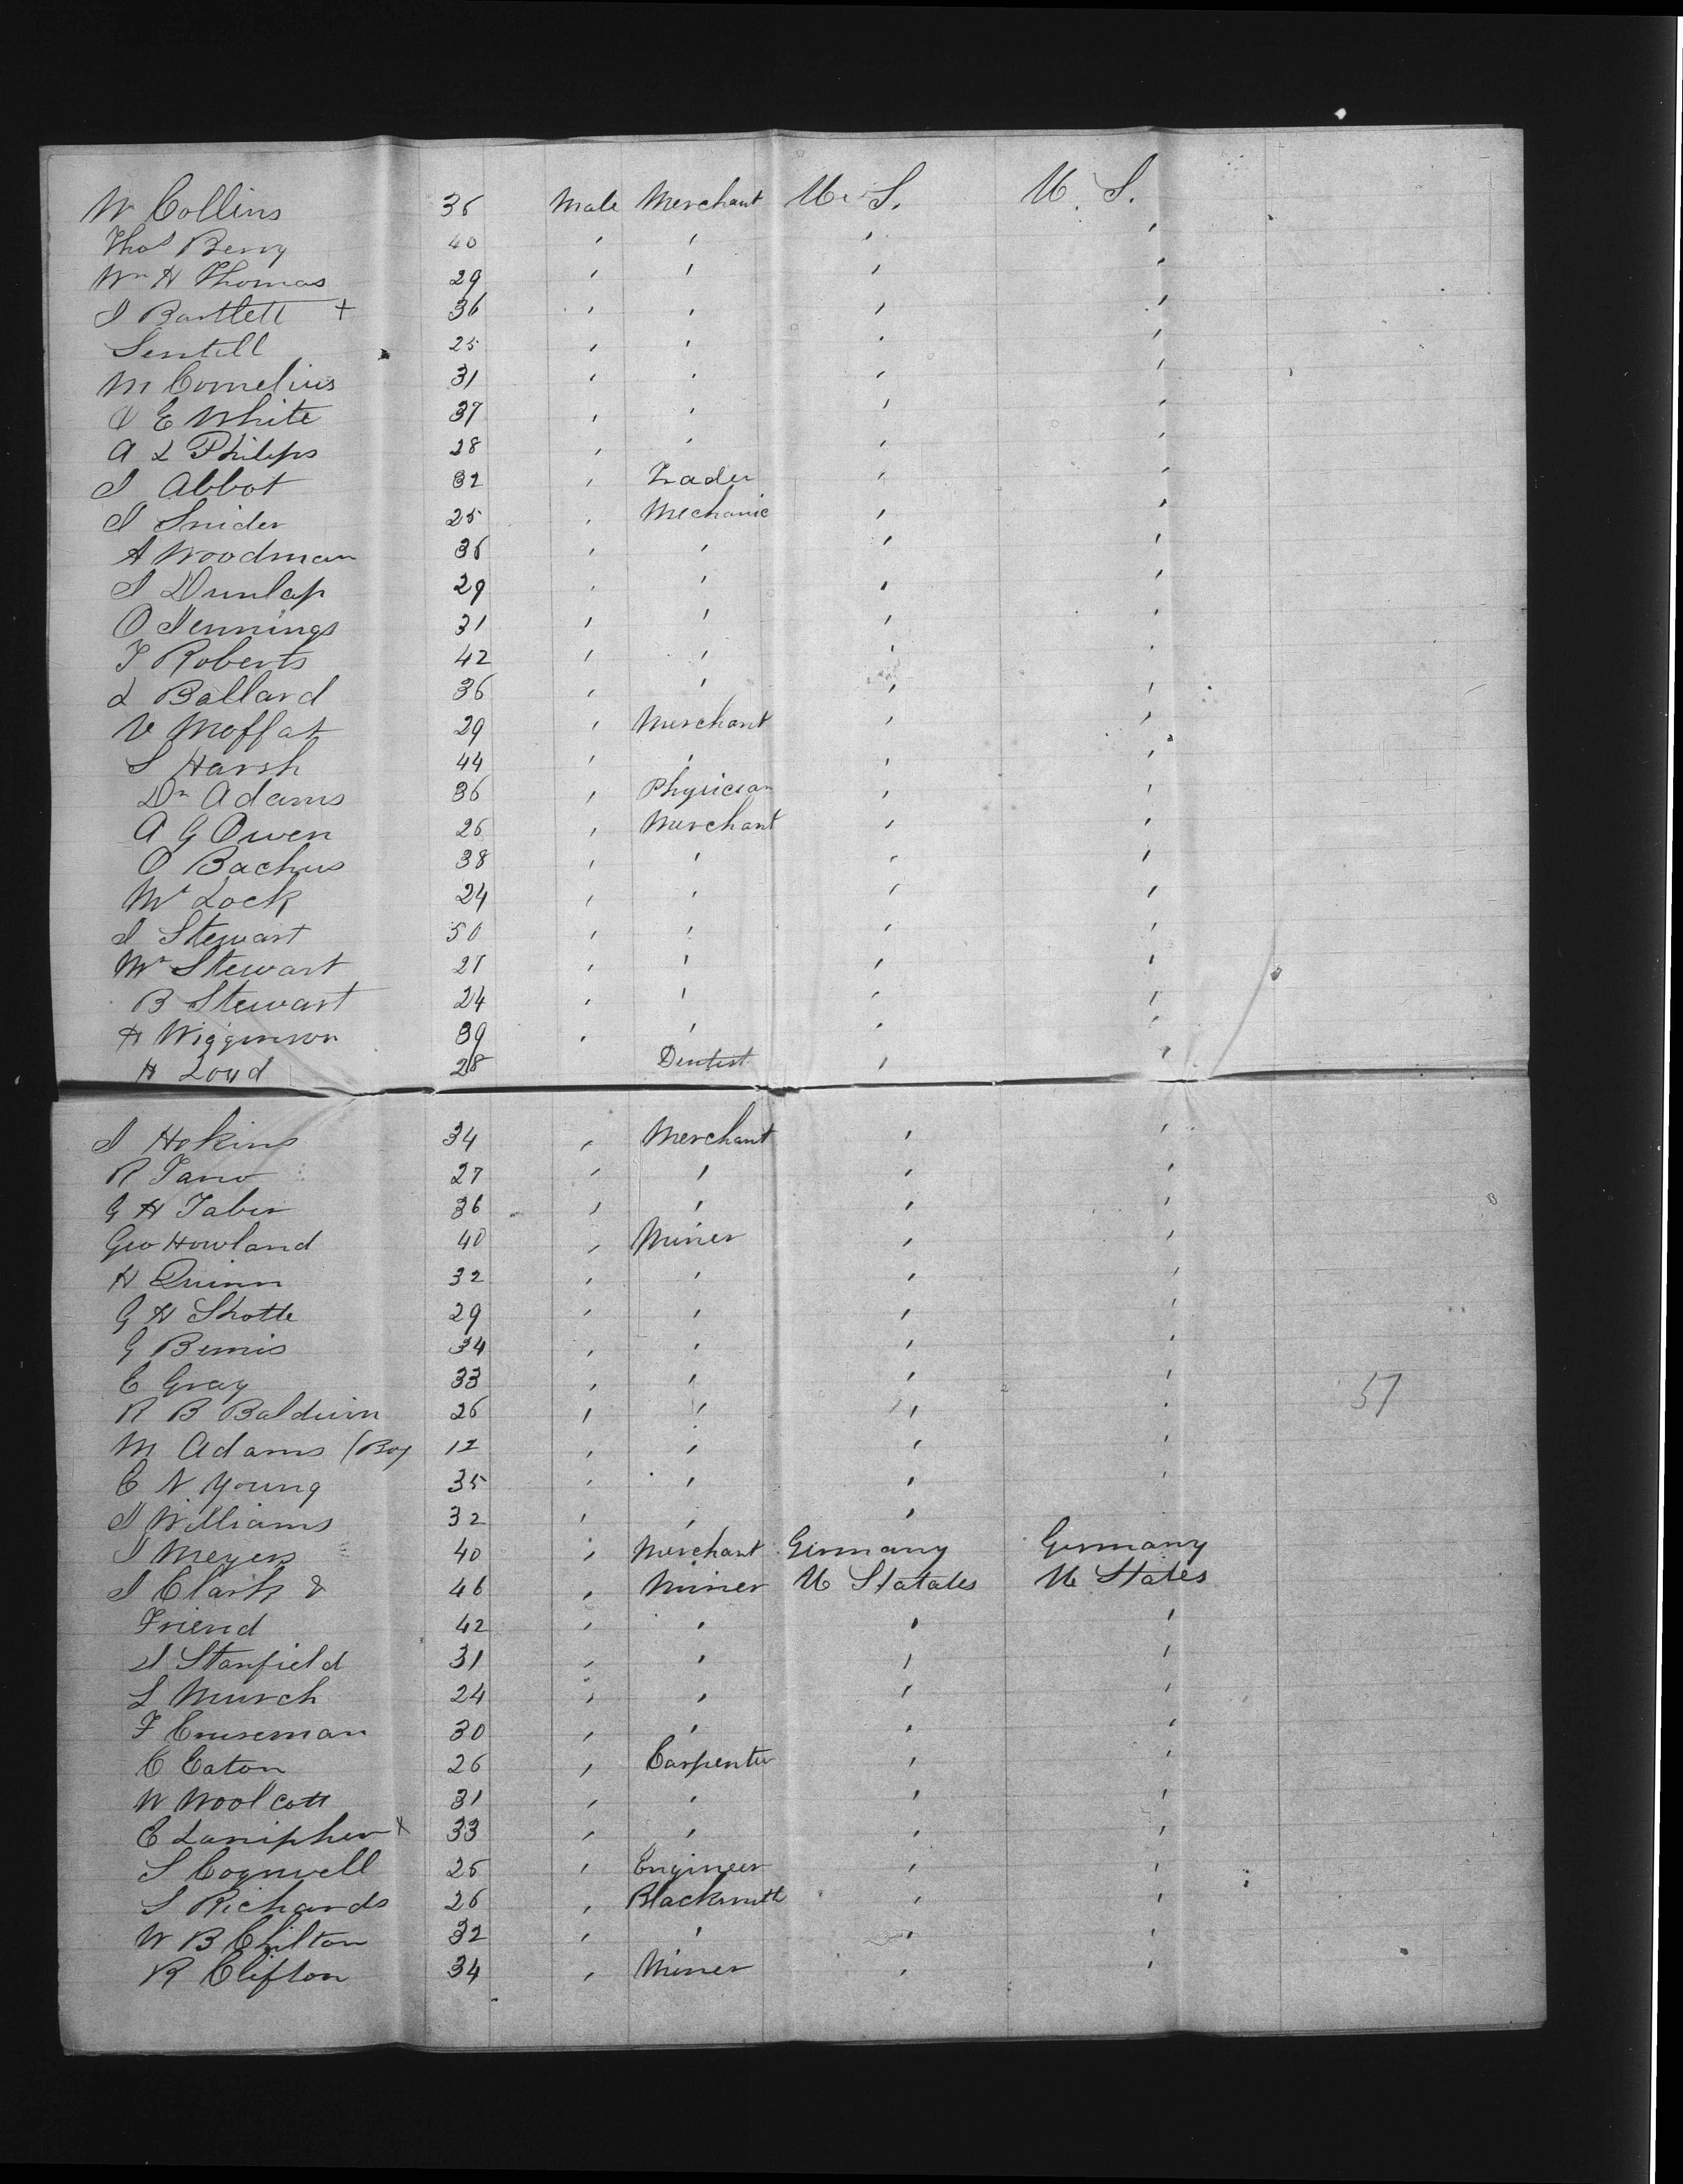 W Collins 36 Male Merchant U. S. U. S.
Thos Berry 40 " " " "
Wm H Thomas 29 " " " "
J Bartlett + 36 " " " "
Sentell 25 " " " "
M Cornelius 31 " " " "
E White 37 " " " "
A L Philips 28 " " " "
J Abbot 32 " Trader " "
J Snider 25 " Mechanic " "
A Woodman 36 " " " "
J Dunlap 29 " " " "
O Jennings 31 " " " "
T Roberts 42 " " " "
L Ballard 36 " " " "
V Moffat 29 " Merchant " "
S Harsh 44 " " " "
Dr Adams 36 " Physician " "
A G Owen 26 " Merchant " "
O Bachus 38 " " " "
Mr Lock 24 " " " "
J Stewart 50 " " " "
Mr Stewart 21 " " " "
B Stewart 24 " " " "
H Wigginson 39 " " " "
H Loyd 28 Dentist " "
J Hokins 34 " Merchant " "
R 27 " " " "
G H Taber 36 " " " "
Geo Howland 40 " Miner " "
H Quinn 32 " " " "
G H Shotte 29 " " " "
G Bemis 34 " " " "
E Gray 33 " " " "
R B Baldwin 26 " " " " 57
M Adams (Boy 12 " " " "
C N Young 35 " " " "
J Williams 32 " " "
J Meyers 40 " Merchant Germany Germany
J Clark & 46 " Miner U Statates U States
Friend 42 " " " "
J Stanfield 31 " " " "
L Murch 24 " " " "
F Cruseman 30 " " " "
C Eaton 26 " Carpenter " "
W Woolcott 31 " " " "
E Lanipher x 33 " " " "
S Cogswell 26 " Engineer " "
S Richards 26 " Blacksmith " "
W B Chilton 32 " " " "
R Clifton 34 " Miner " "